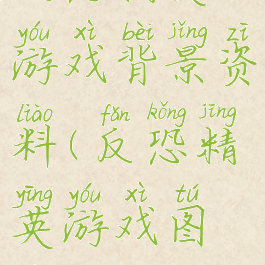 yóu xì bèi jǐng zī
游戏背景资
liào fǎn kǒng jīng
料(反恐精
yīng yóu xì tú
英游戏图